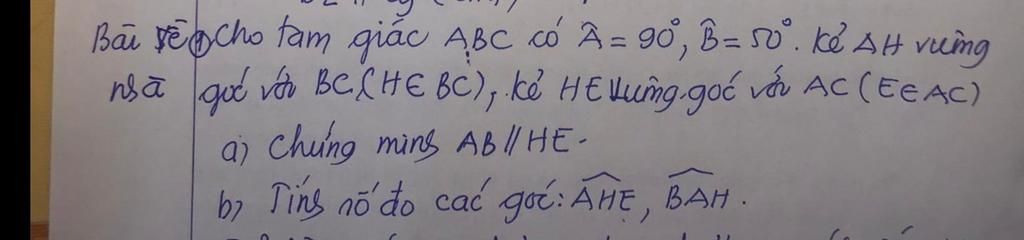 Bài về ① Cho tam giác ABC có Â = 90°, B̂ = 50°. kẻ AH vuông
nhà góc với BC (H ∈ BC), kẻ HE vuông góc với AC (E ∈ AC)
a) Chứng minh AB // HE.
b) Tính số đo các góc: AHE, BAH.